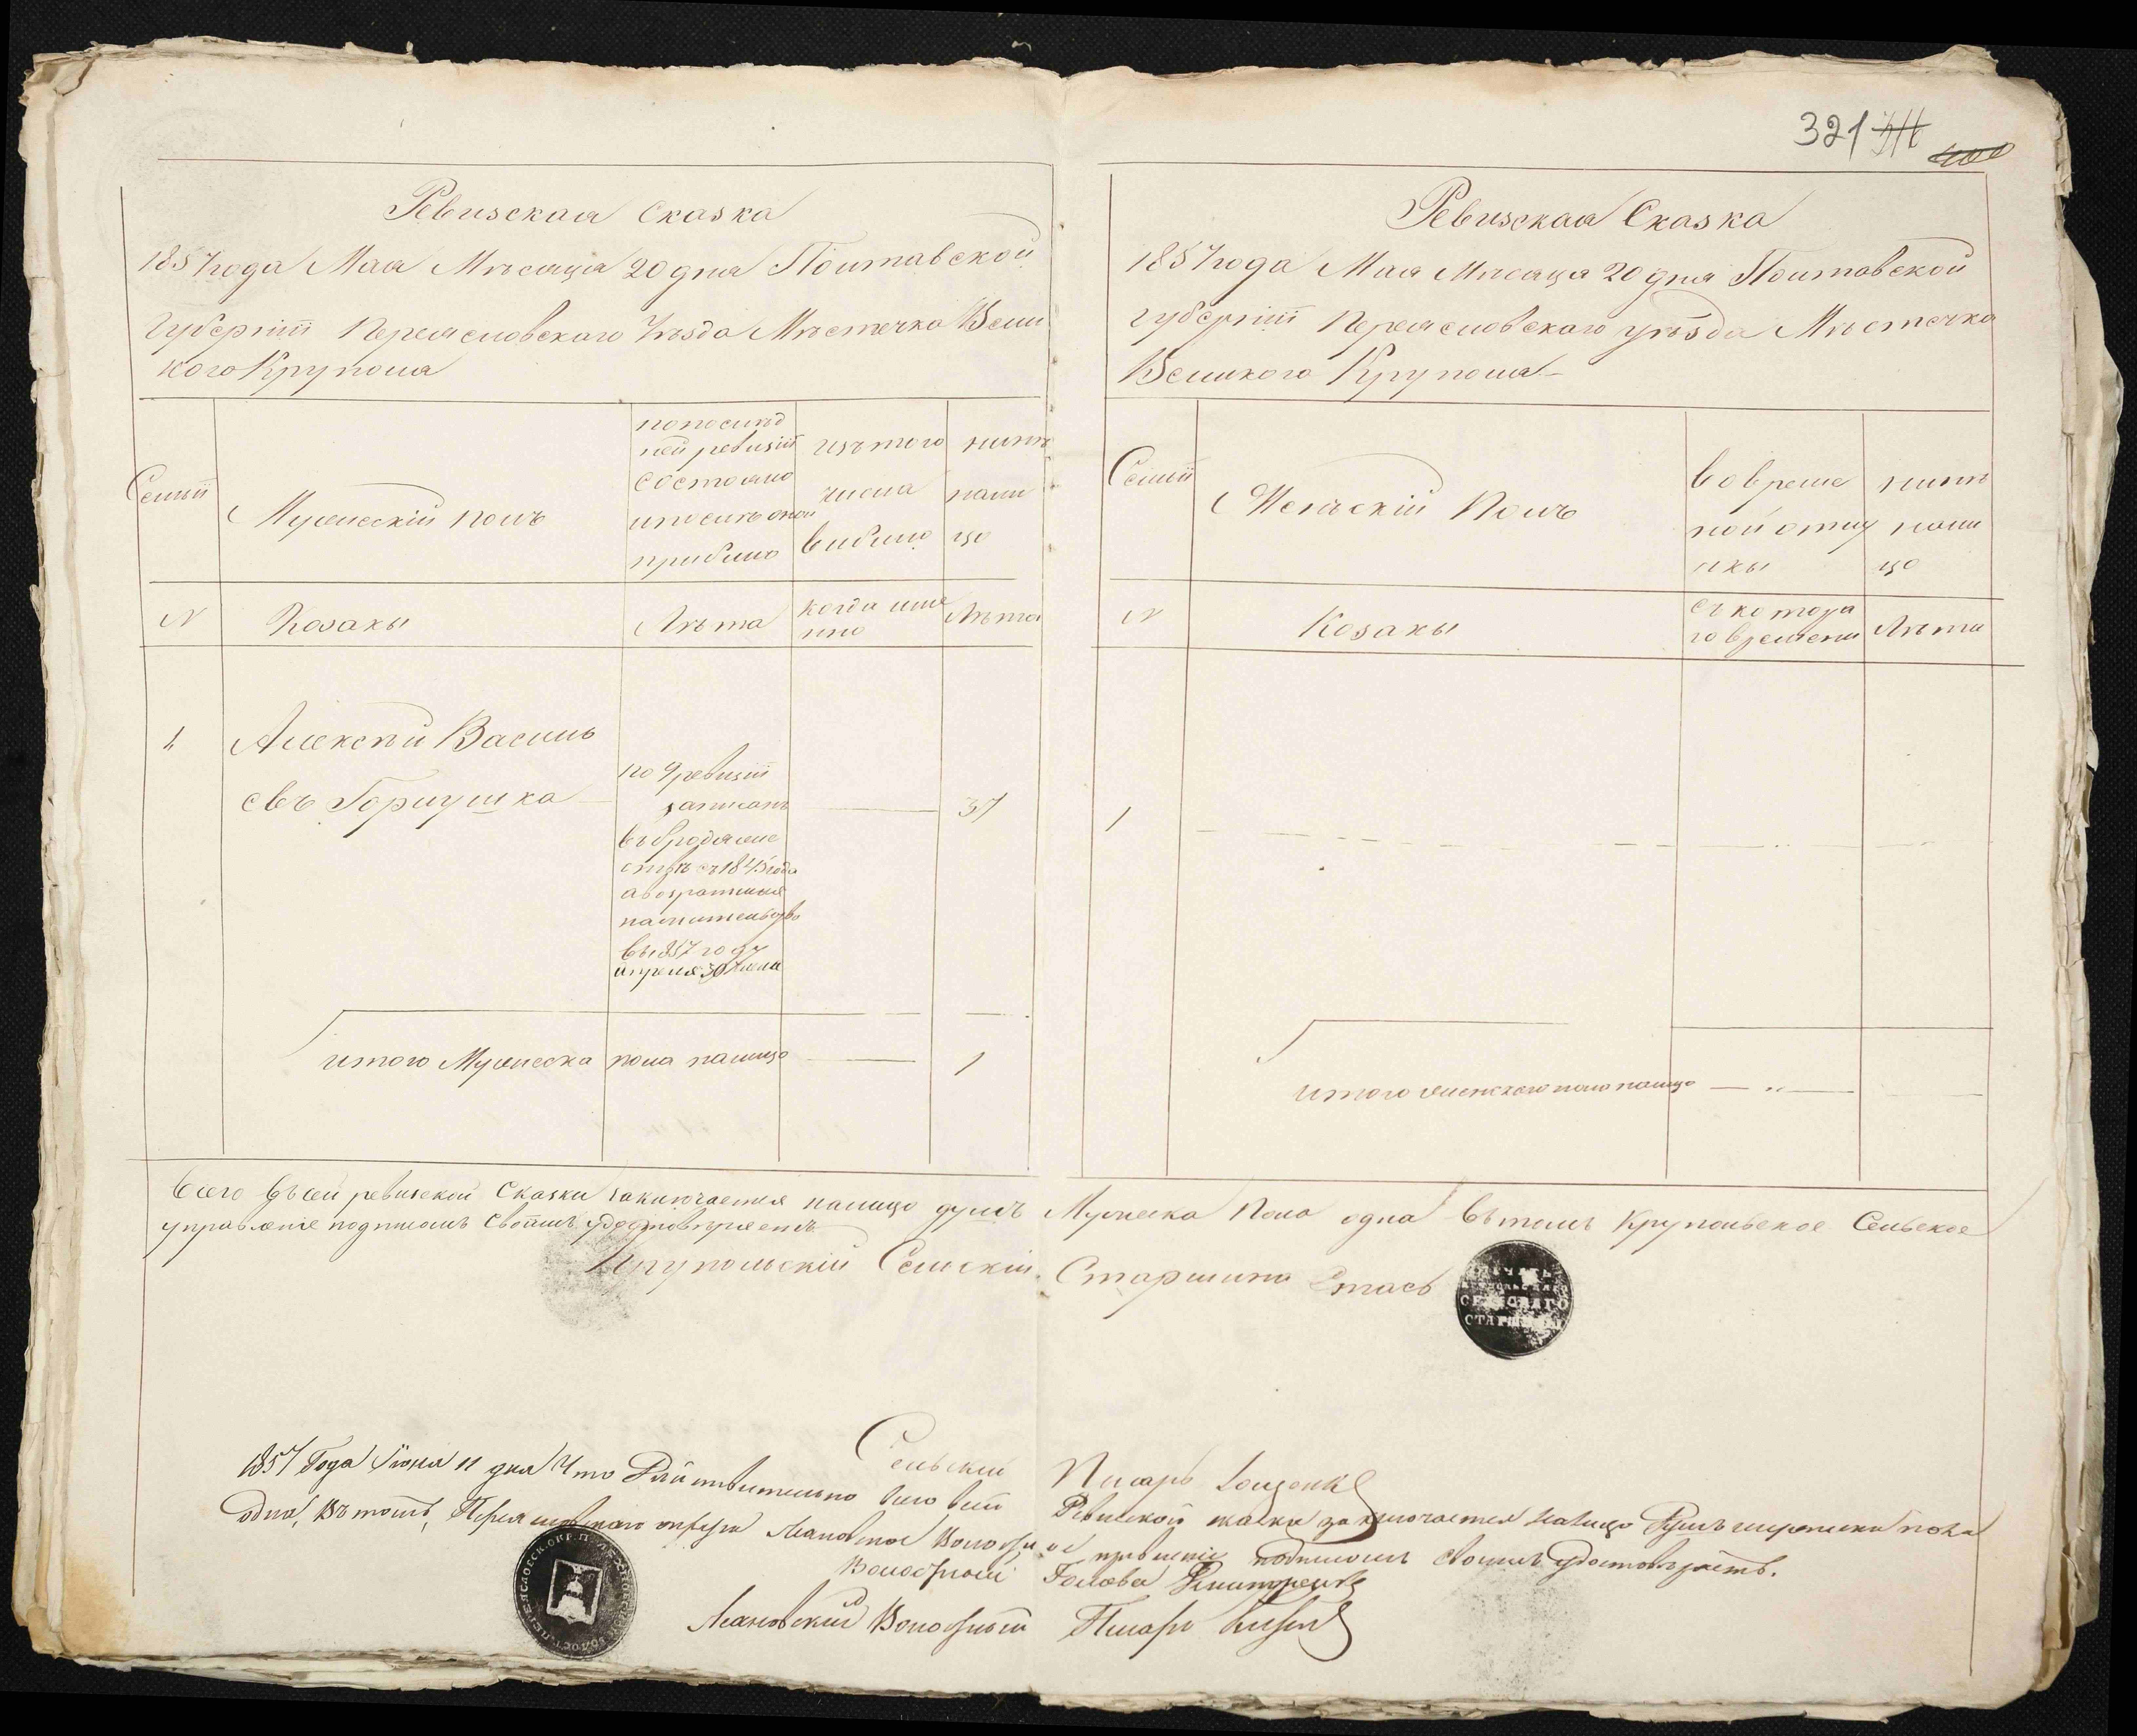 321
Ревизская Сказка
1857 года Мая Мѣсяца 20 дня Полтавской
Губерніи Переясловскаго Уѣзда Мѣстечка Вели
кого Круполя
Семьи
Мужескій полъ
попослѣд
ней ревизіи
состояло
ипослѣ оной
прибыло
изъ того
числа
выбыло
нынѣ
нали
цо
N
Козаки
Лѣта
когда име
нно
Лѣта
1
Алексѣй Василь
евъ Горлушка
по 9 ревизіи
записанъ
въ бродяже
ствѣ съ 1845 года
авозратился
нажительство
въ 1857 году
апреля 30 числа
37
итого Мужеска пола налицо 1
Ревизская Сказка
1857 года Мая Мѣсяца 20 дня Полтавской
губерніи Переясловскаго уѣзда Мѣстечка
Великого Круполя
Семьи
Женскій Полъ
вовреме
ной отлу
чкы
нынѣ
нали
цо
N
Козаки
съ котора
го времени
Лѣта
1
итого женскаго пола налицо
Всего въсей ревизской Сказки заключается налицо душъ Мужеска Пола одна вътомъ Крупольское Сельское
управленіе подписомъ своимъ удостовѣряетъ
Крупольскій Сельскій Старшина
ПЕЧАТЬ
СЕЛЬСКАГО
СТАРШИНЫ
Сельскій Писарь
1857 Года Іюня 11 дня Что Дѣйствительно всего въ сей Ревизской сказки заключается налицо Душъ мужеска пола
одна, Въ томъ, Переясловскаго округа Лехновское Волостное правленіе подписомъ своимъ удостовѣряетъ.
Волостной Голова Дмитренко
Лехновский Волостный Писарь